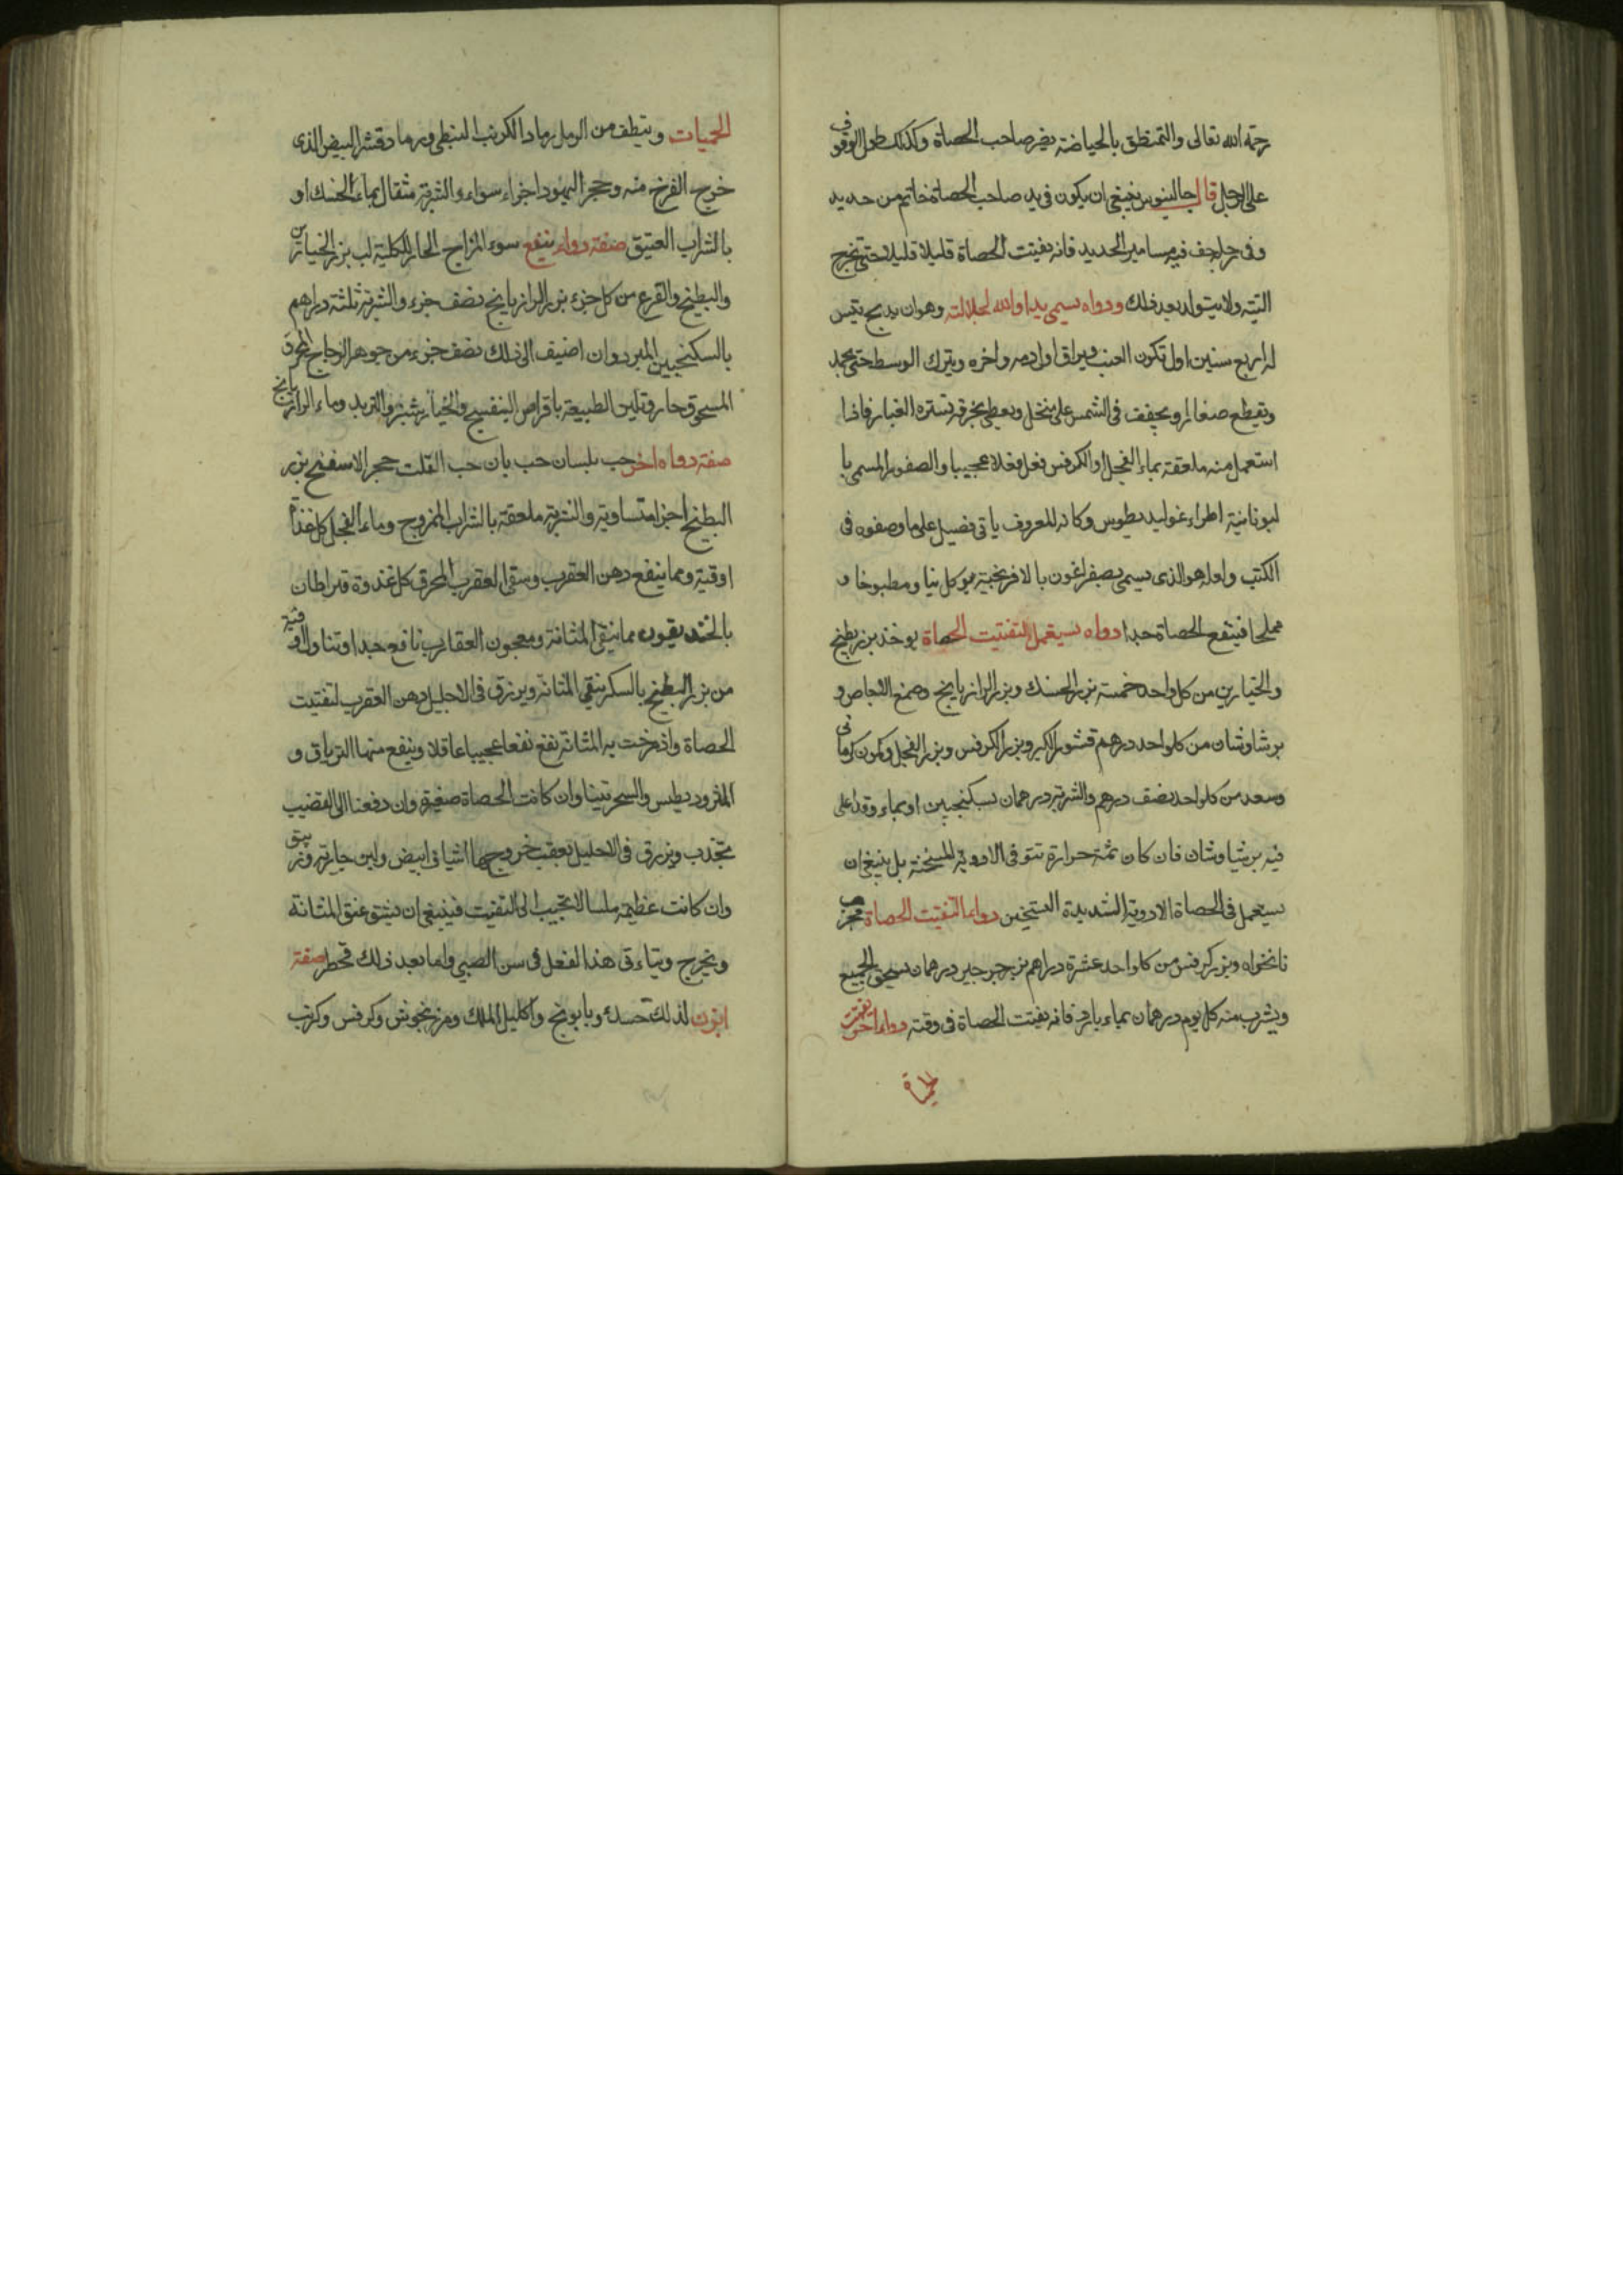 رحمة الله تعالى والتمنطق بالحياضة يضر صاحب الحصاة وكذلك طول الوقوف
على الرجل قال جالينوس ينبغي ان يكون في يد صاحب الحصاة خاتم من حديد
وفي فيه مسامير الحديد فانه يفتت الحصاة قليلا قليلا حتى تخرج
التبة ولا يتولد بعد ذلك ودواء يسمى يد الله لجلالته وهو ان يذبح تيس
له اربع سنين اول تكون العنب ويراق اول دمه واخره ويترك الوسط حتى يجمد
ويقطع صغارا ويجفف في الشمس على منخل ويغطى بخرقة تستره الغبار فاذا
استعمل منه ملعقة بماء الفجل او الكرفس فعل فعلا عجيبا والصفور المسمى با
ليونانية اطراغوليديطوس وكانه المعروف ياتي تفصيل على ما وصفوه في
الكتب ولعله هو الذي يسمى بصفراغون بالافرنجية يوكل نيا ومطبوخا و
مملحا فينفع الحصاة جدا دواء يستعمل لتفتيت الحصاة يوخذ بزر بطيخ
والخيارين من كل واحد خمسة بزر الحسك وبزر الرازيانج وصمغ الاجاص و
برشاوشان من كل واحد درهم قشور الكبر وبزر الكرفس وبزر الفجل وكمون كرماني
وسعد من كل واحد نصف درهم والشربة درهمان بسكنجبين او بماء وقد اغلى
فيه برشياوشان فان كان ثمة حرارة تتوقى الادوية المسخنة بل ينبغي ان
يستعمل في الحصاة الادوية الشديدة التسخين دواء لتفتيت الحصاة مجرب
نانخواه وبزر كرفس من كل واحد عشرة دراهم بزر جرجير درهمان يسحق الجميع
ويشرب منه كل يوم درهمان بماء بارد فانه يفتت الحصاة في وقته دواء اخر يفتت
الحصاة
الحميات وينظف من الرمل رماد الكرنب النبطي ورماد قشر البيض الذي
خرج الفرخ منه وحجر اليهود اجزاء سواء والشربة مثقال بماء الحسك او
بالشراب العتيق صفة دواء ينفع سوء المزاج الحار للكلية لب بزر الخيارين
والبطيخ والقرع من كل جزء بزر الرازيانج نصف جزء والشربة ثلثة دراهم
بالسكنجبين المبرد وان اضيف الى ذلك نصف جزء من جوهر الزجاج المحرق
المسحوق جاز وتلين الطبيعة باقراص البنفسج والخيار شنبر والتربد وماء الرازيانج
صفة دواء اخر حب بلسان حب بان حب القلت حجر الاسفنج بزر
البطيخ اجزا متساوية والشربة ملعقة بالشراب الممزوج وماء الفجل كل غداة
اوقية ومما ينفع دهن العقرب وسقي العقرب المحرق كل غدوة قيراطان
بالخنديقون مما ينقي المثانة ومعجون العقارب نافع جدا وتناول اوقية
من بزر البطيخ بالسكر ينقي المثانة ويزرق في الاحليل دهن العقرب لتفتيت
الحصاة واذ مرخت به المثانة نفع نفعا عجيبا عاقلا وينفع منها الترياق و
المثروديطيس والسجزنينا وان كانت الحصاة صغيرة وان دفعنا الى القضيب
تجذب ويزرق في الاحليل بعقب خروجها اشياف ابيض ولبن جارية وزيبق
وان كانت عظيمة ملسا لا تجيب الى التفتيت فينبغي ان يشق عنق المثانة
ويخرج ويتاءتى هذا الفعل في سن الصبي واما بعد ذلك فخطر صفة
ابزن لذلك حسك وبابونج واكليل الملك ومرزنجوش وكرفس وكرنب